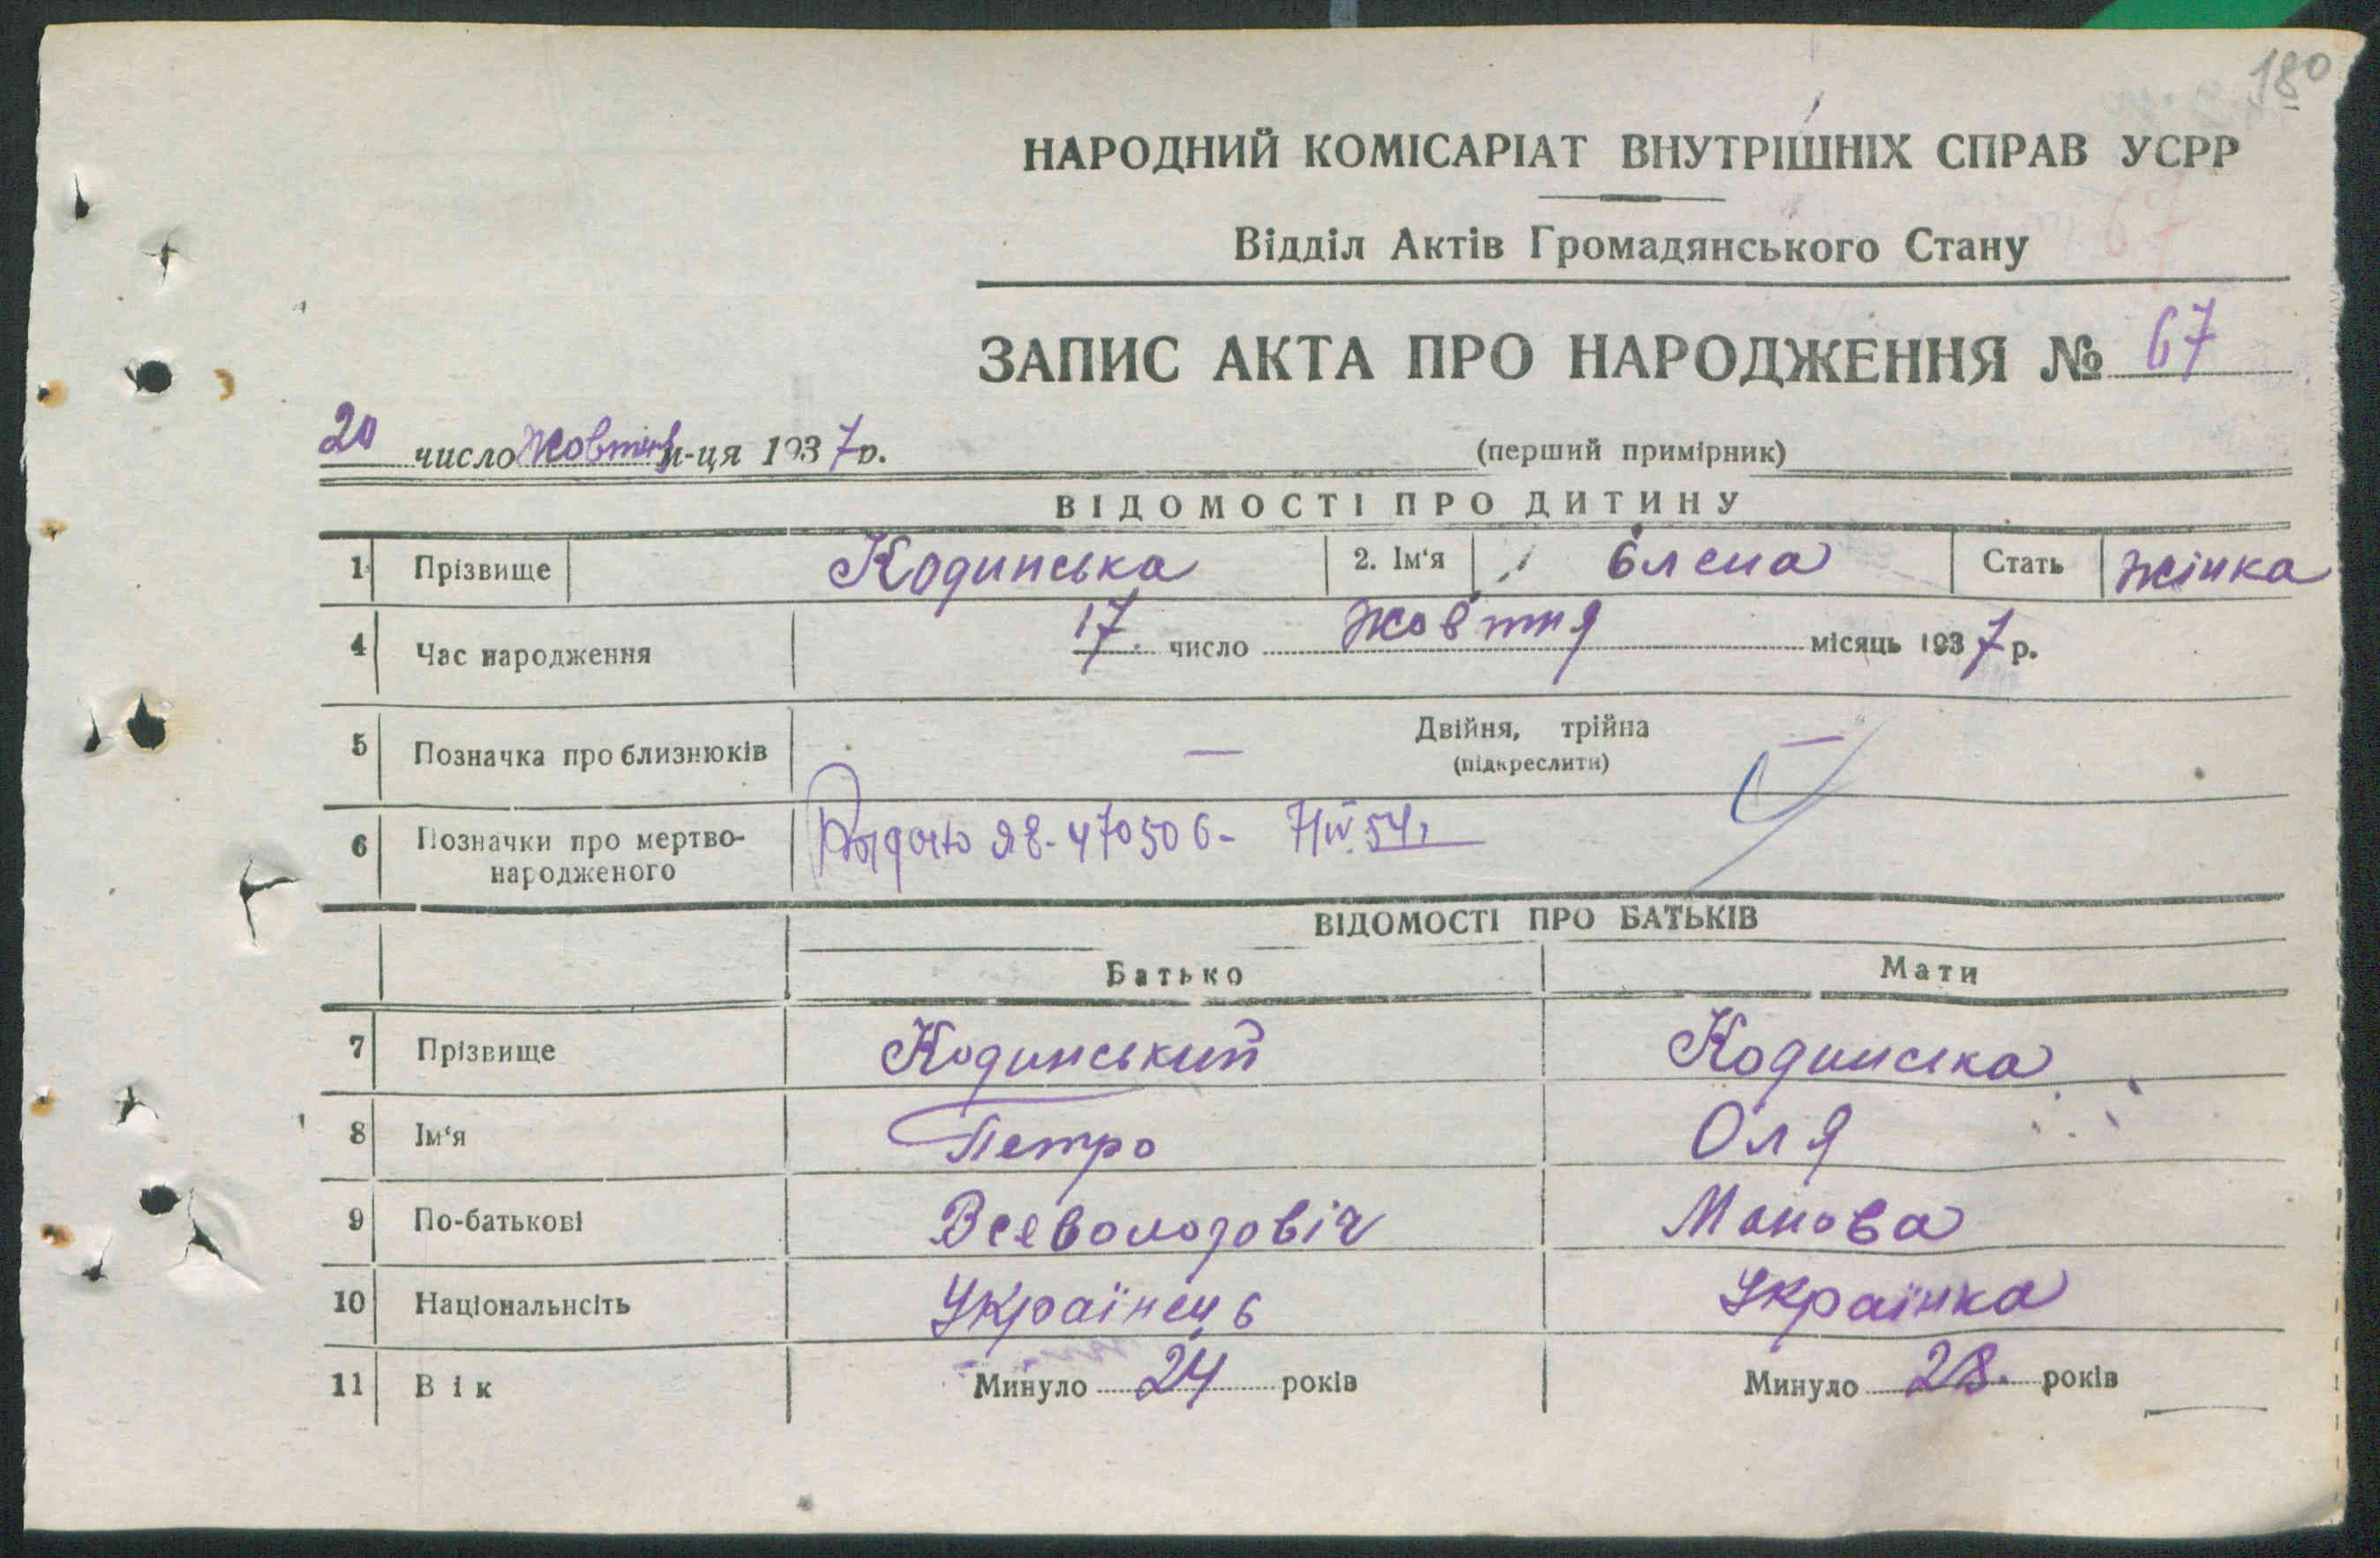 180
НАРОДНИЙ КОМІСАРІАТ ВНУТРІШНІХ СПРАВ УСРР
Відділ Актів Громадянського Стану
ЗАПИС АКТА ПРО НАРОДЖЕННЯ № 67
20 число Жовтня м-ця 1937 р.
(перший примірник)
ВІДОМОСТІ ПРО ДИТИНУ
1 Прізвище Кодинська 2. Ім‘я Єлена Стать жінка
4 Час народження 17. число жовтня місяць 1937 р.
5 Позначка про близнюків — Двійня, трійна —
(підкреслити)
6 Позначки про мертво-
народженого
Выдано ЯЗ-470506- 7/IV.54г
ВІДОМОСТІ ПРО БАТЬКІВ
Батько Мати
7 Прізвище Кодинський Кодинска
8 Ім‘я Петро Оля
9 По-батькові Всеволодовіч Манова
10 Національнсіть Українець Українка
11 Вік Минуло 24 років Минуло 28. років